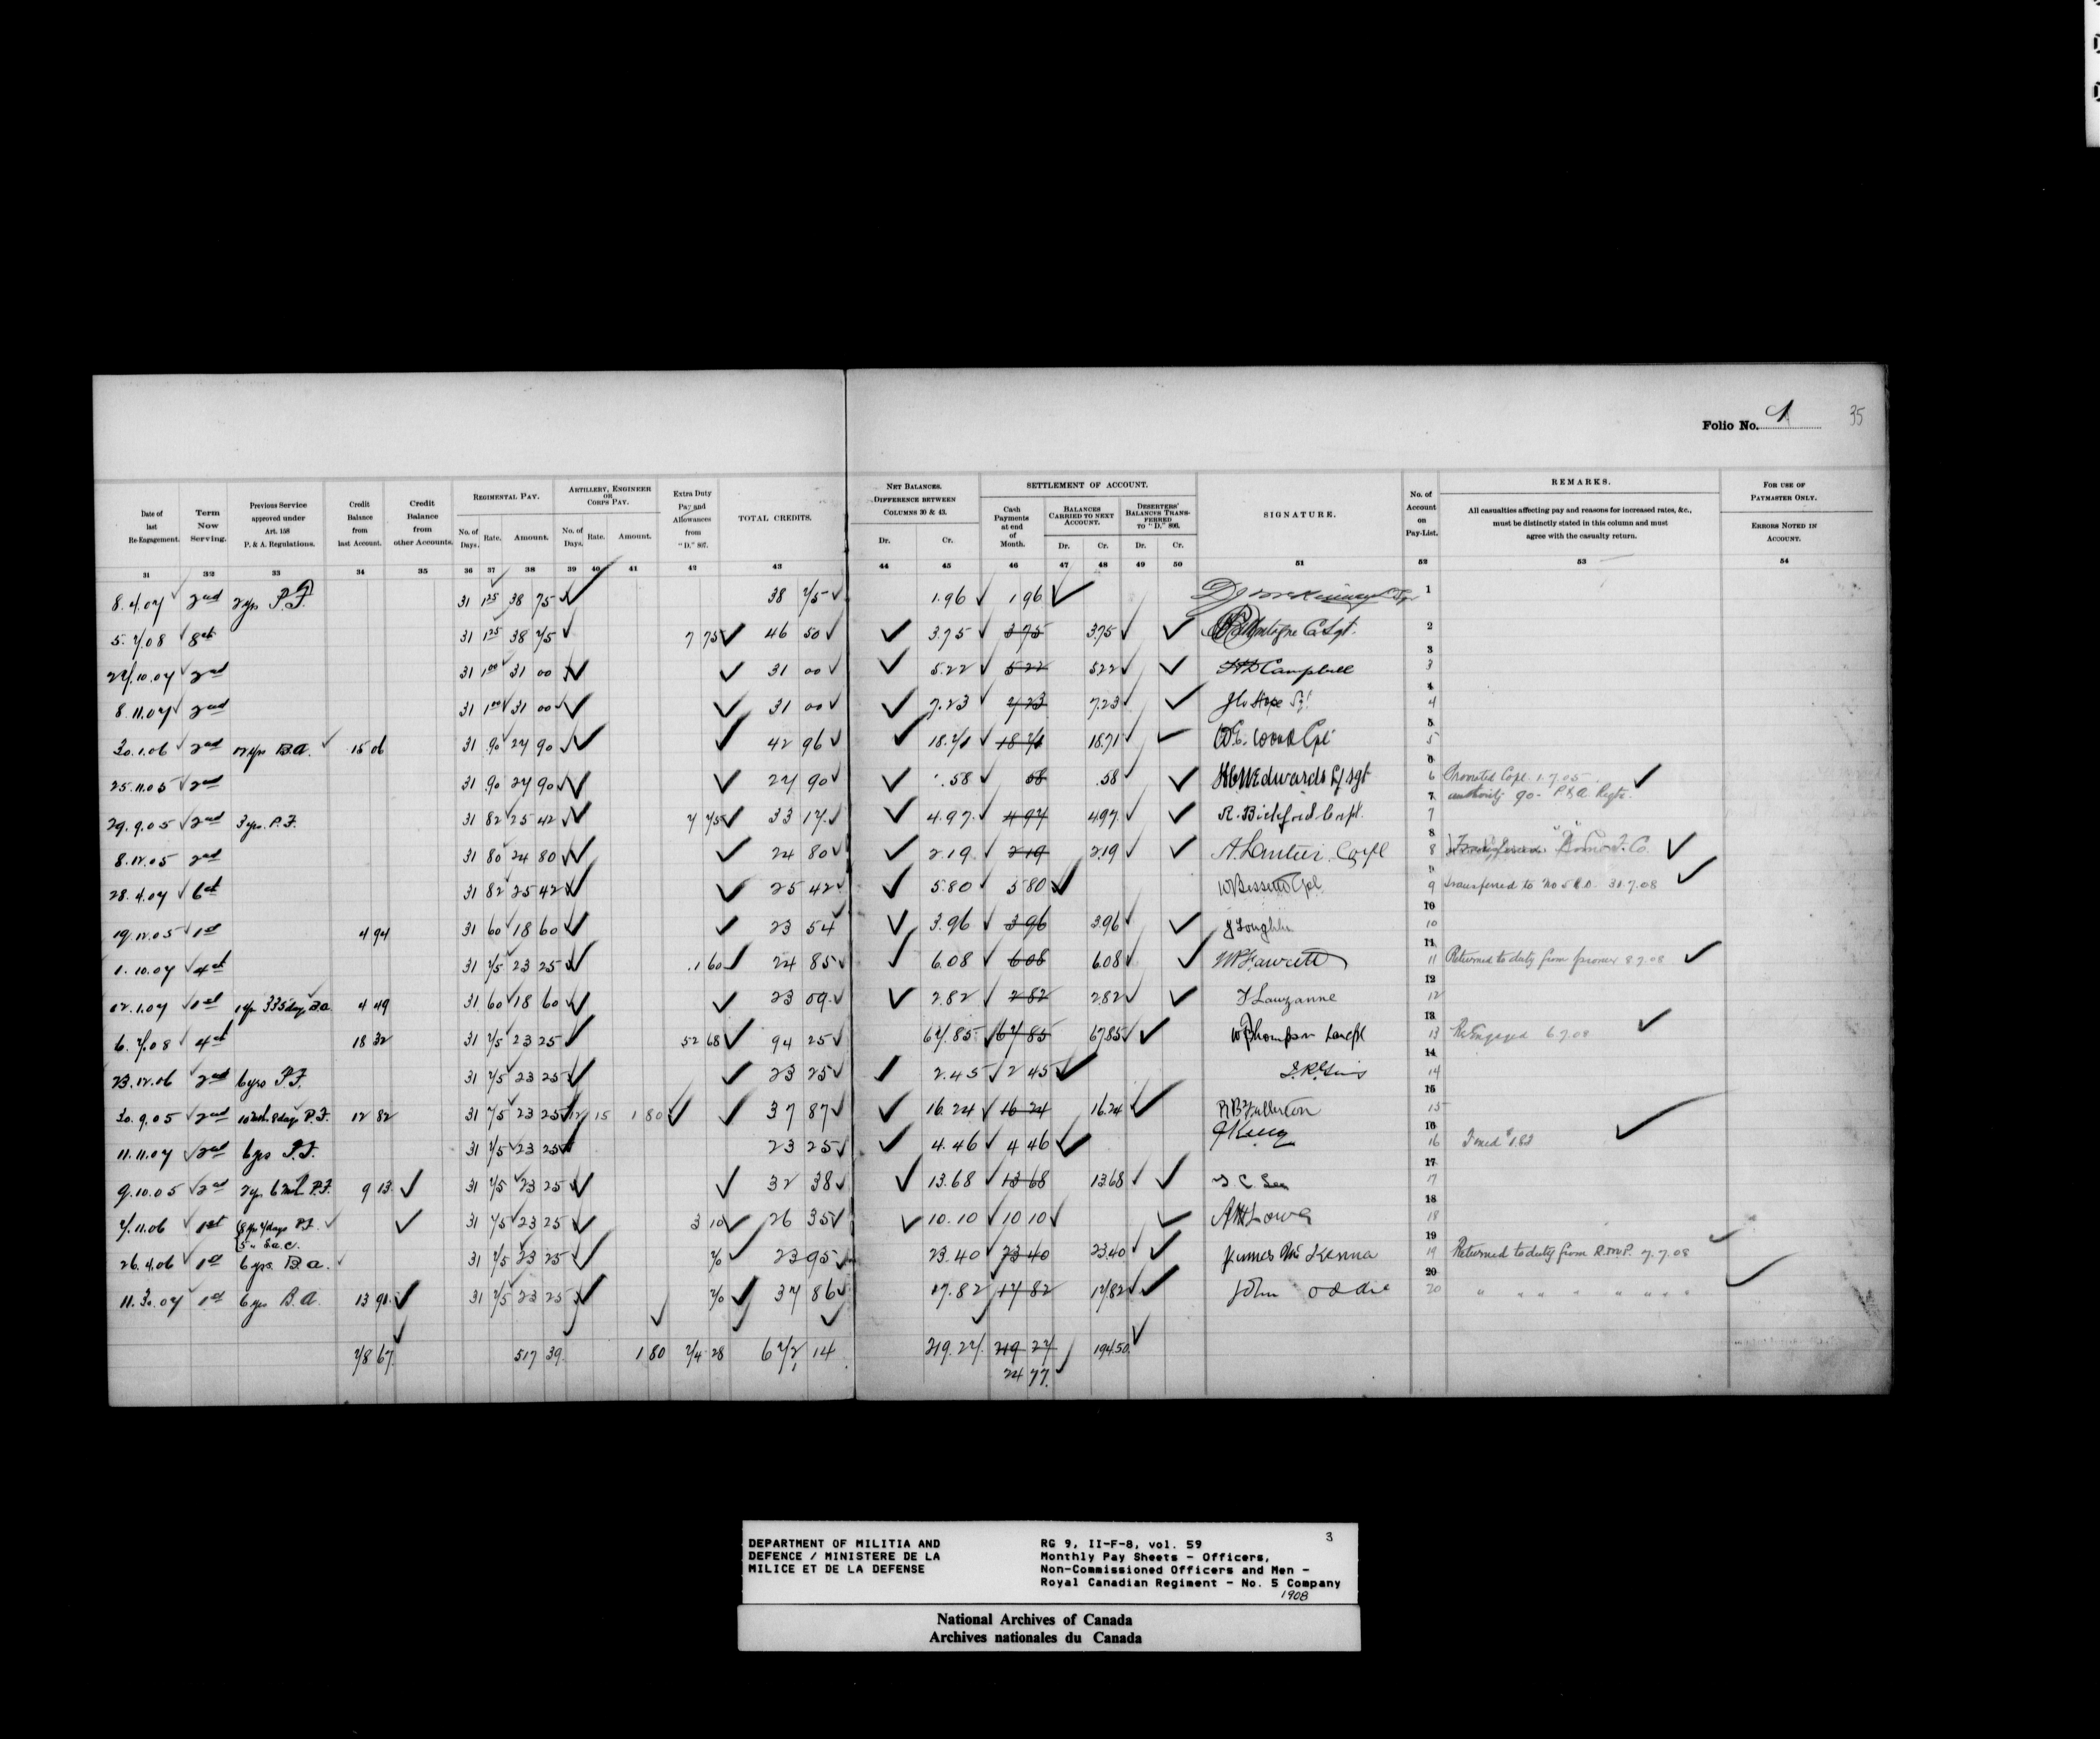 Folio No. 1 35
Date of last Re-Engagement.
Term Now Serving.
Previous Service approved under Art. 158 P. & A. Regulations.
Credit Balance from last Account.
Credit Balance from other Accounts.
REGIMENTAL PAY.
No. of Days. Rate. Amount.
ARTILLERY, ENGINEER OR CORPS PAY.
No. of Days. Rate. Amount.
Extra Duty Pay and Allowances from "D." 807.
TOTAL CREDITS.
NET BALANCES. DIFFERENCE BETWEEN COLUMNS 30 & 43.
Dr. Cr.
SETTLEMENT OF ACCOUNT.
Cash Payments at end of Month.
BALANCES CARRIED TO NEXT ACCOUNT.
Dr. Cr.
DESERTERS' BALANCES TRANSFERRED TO "D." 806.
Dr. Cr.
SIGNATURE.
No. of Account on Pay-List.
REMARKS.
All casualties affecting pay and reasons for increased rates, &c., must be distinctly stated in this column and must agree with the casualty return.
FOR USE OF PAYMASTER ONLY.
ERRORS NOTED IN ACCOUNT.
31 32 33 34 35 36 37 38 39 40 41 42 43 44 45 46 47 48 49 50 51 52 53 54
8.4.07 2nd 2yrs P.F. 31 1.25 38 75 38 75 1.96 1 96 1
5.7.08 8th 31 1.25 38 75 7 75 46 50 3.75 3 75 3.75 C.Sgt. 2
27.10.07 2nd 31 1.00 31 00 31 00 5.22 5 22 5.22 Campbell 3
8.11.07 2nd 31 1.00 31 00 31 00 7.23 7 23 7.23 4
30.1.06 2nd B.A. 15 06 31 90 27 90 42 96 18.71 18 71 18.71 W.E. Wood Cpl 5
25.11.05 2nd 31 90 27 90 27 90 .58 58 .58 Edwards L/Sgt 6 Promoted Copl. 1.7.05
authority 90- P&A Regts.
29.9.05 2nd 3 yrs. P.F. 31 82 25 42 7 75 33 17 4.97 4 97 4.97 R. Bickford Corpl. 7
8.12.05 2nd 31 80 24 80 24 80 2.19 2 19 2.19 A. Lantier Corpl 8
28.4.07 6th 31 82 25 42 25 42 5.80 5 80 W Bessette Cpl. 9 transferred to No 5 R.D. 31.7.08
19.12.05 1st 4 94 31 60 18 60 23 54 3.96 3 96 3.96 J Loughlin 10
1.10.07 4th 31 75 23 25 1 60 24 85 6.08 6 08 6.08 Fawcett 11 Returned to duty from prison 8.7.08
12.1.07 1st 1yr 335 days B.A. 4 49 31 60 18 60 23 09 2.82 2 82 2.82 Lauzanne 12
6.7.08 4th 18 32 31 75 23 25 52 68 94 25 67.85 67 85 67.85 W Thompson 13 ReEngaged 6.7.08
23.12.06 2nd 6yrs P.F. 31 75 23 25 23 25 2.45 2 45 14
30.9.05 2nd 10 mth 8 days P.F. 12 82 31 75 23 25 12 15 1 80 37 87 16.24 16 24 16.24 R B Fullerton 15
11.11.07 2nd 6 yrs P.F. 31 75 23 25 23 25 4.46 4 46 16 Fined $1.83
9.10.05 2nd 2yr 6 mth P.F. 9 13 31 75 23 25 32 38 13.68 13 68 13.68 17
7.11.06 1st 31 75 23 25 3 10 26 35 10.10 10 10 Lowe 18
26.4.06 1st 6 yrs. B.A. 31 75 23 25 70 23 95 23.40 23 40 23.40 James McKenna 19 Returned to duty from R.M.P. 7.7.08
11.3.07 1st 6 yrs B.A. 13 91 31 75 23 25 70 37 86 17.82 17 82 17.82 John Oddie 20 " " " " " " " "
78 67 517 39 1 80 74 28 672 14 219.27 219 27 194.50
24 77
DEPARTMENT OF MILITIA AND
DEFENCE / MINISTERE DE LA
MILICE ET DE LA DEFENSE
RG 9, II-F-8, vol. 59 3
Monthly Pay Sheets - Officers,
Non-Commissioned Officers and Men -
Royal Canadian Regiment - No. 5 Company
1908
National Archives of Canada
Archives nationales du Canada